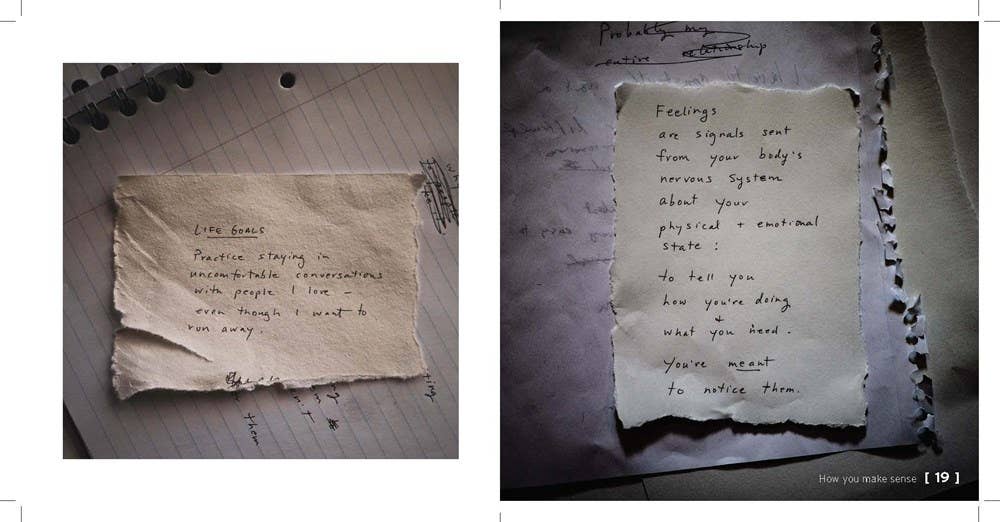 LIFE GOALS
Practice staying in
uncomfortable conversations
with people I love –
even though I want to
run away.
them
Probably my
entire relationship
Feelings
are signals sent
from your body's
nervous system
about your
physical + emotional
state:
to tell you
how you're doing
+
what you need.
You're meant
to notice them.
How you make sense [ 19 ]